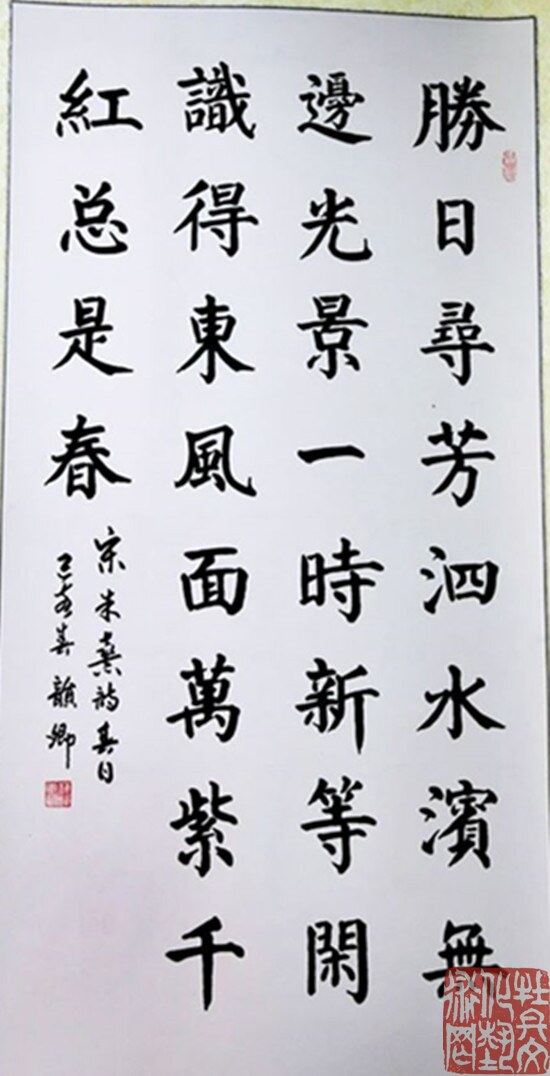 勝日尋芳泗水濱無
邊光景一時新等閑
識得東風面萬紫千
紅总是春
宋朱熹詩春日
己亥春韻卿